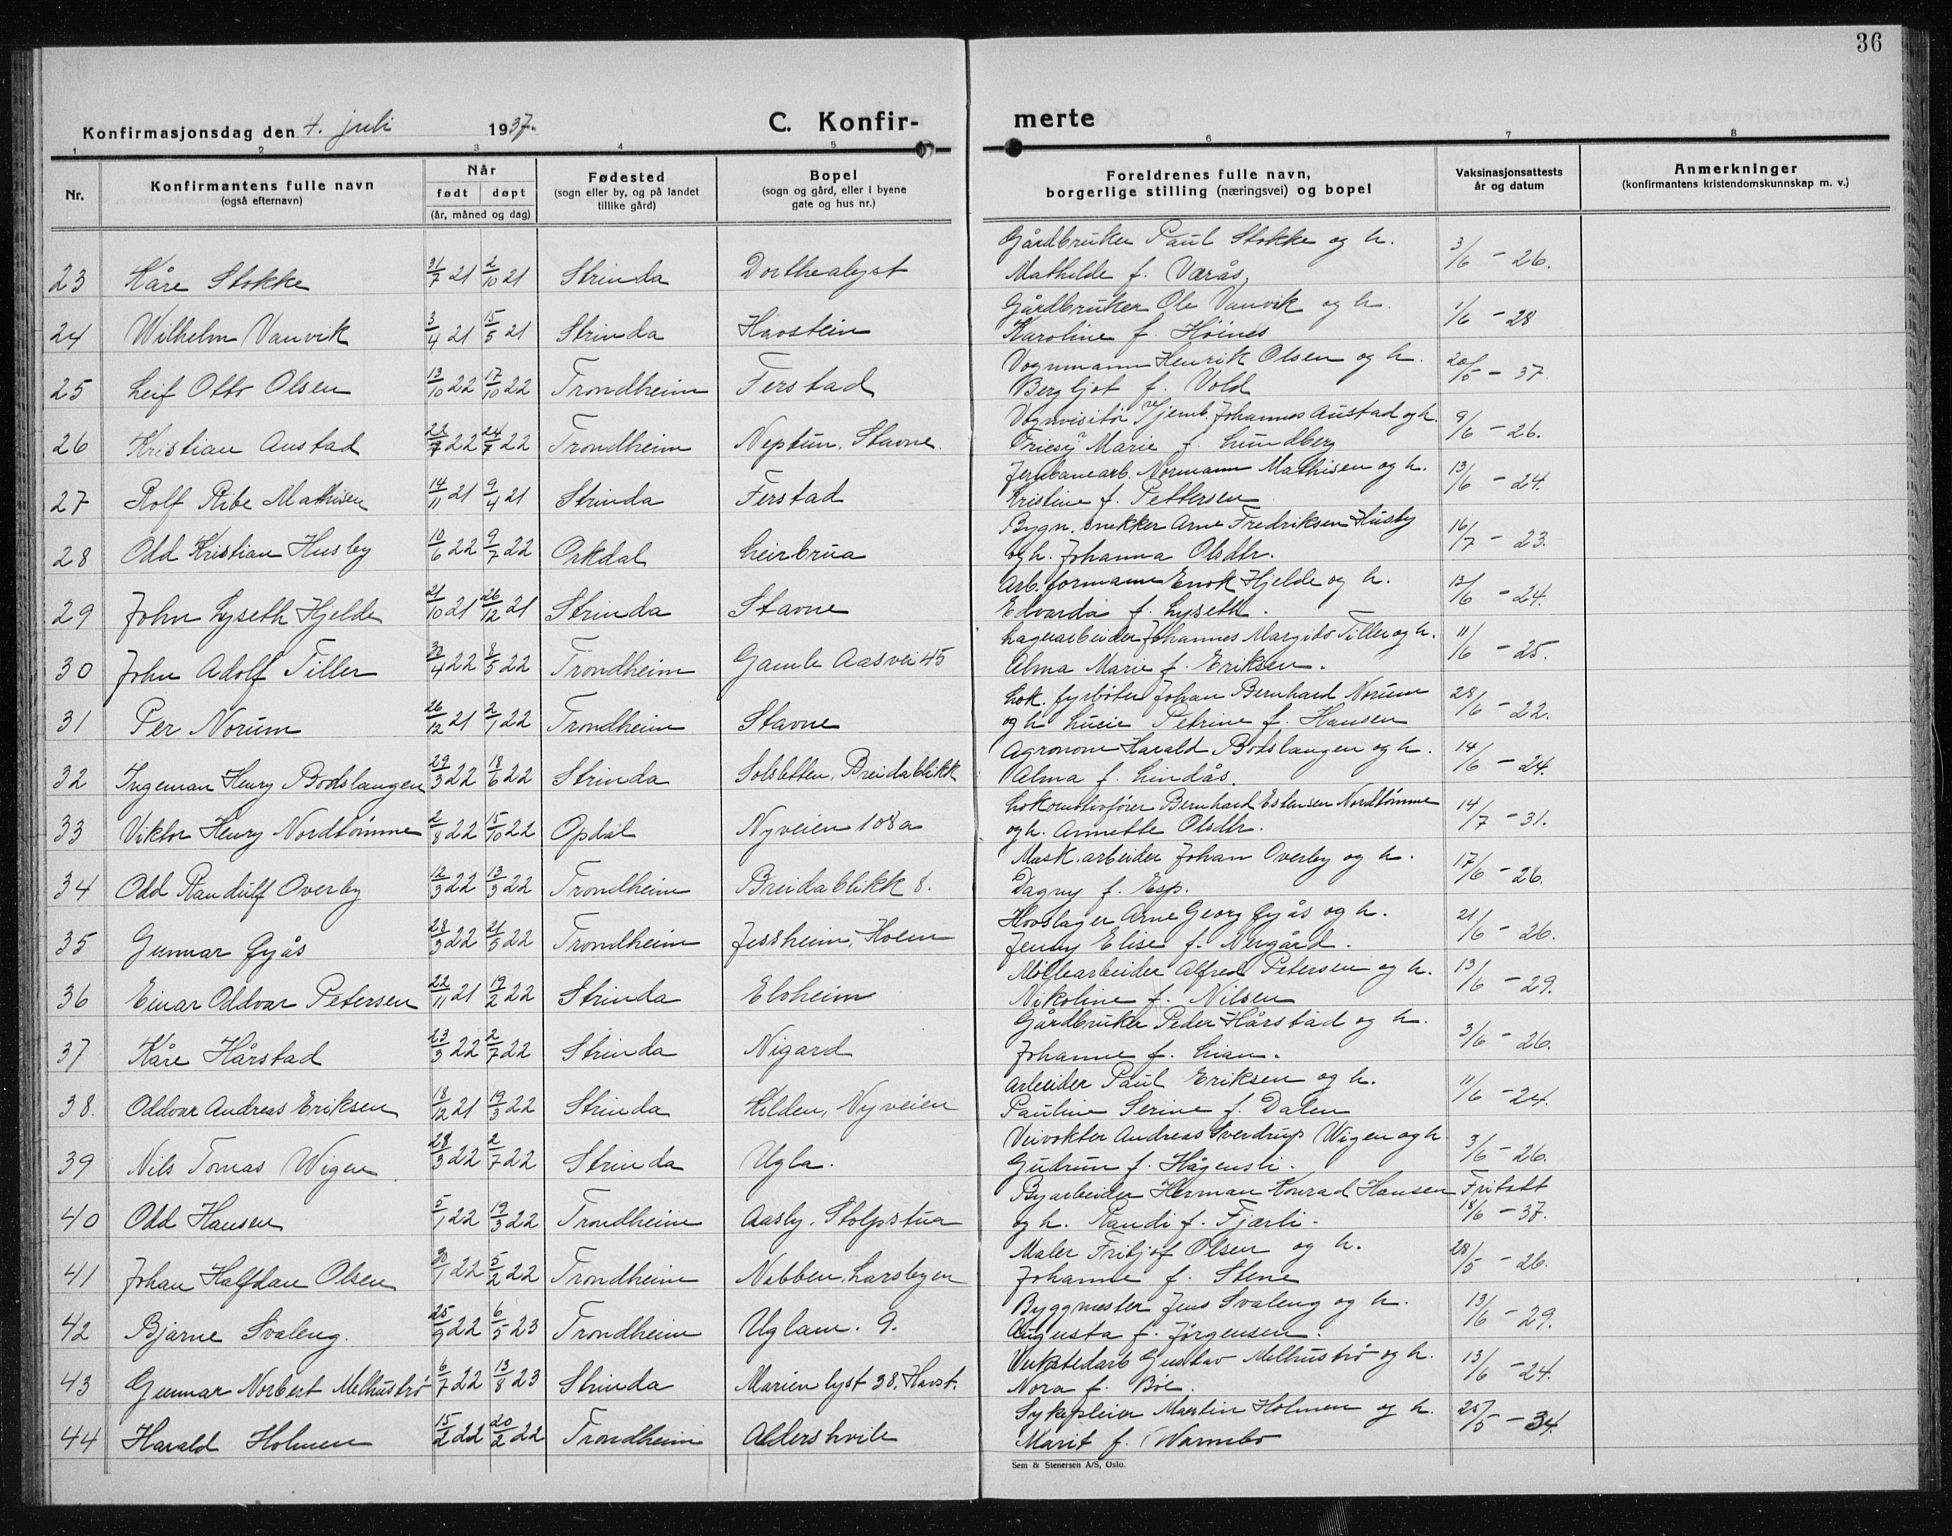 36
Konfirmasjonsdag den 4. juli 1937.
C. Konfir-
merte
1 2 3 4 5 6 7 8
Nr.
Konfirmantens fulle navn
(også efternavn)
Når
født døpt
(år, måned og dag)
Fødested
(sogn eller by, og på landet
tillike gård)
Bopel
(sogn og gård, eller i byene
gate og hus nr.)
Foreldrenes fulle navn,
borgerlige stilling (næringsvei) og bopel
Vaksinasjonsattests
år og datum
Anmerkninger
(konfirmantens kristendomskunnskap m. v.)
Gårdbruker Paul Stokke og h.
23 Kåre Stokke 31/7 21 2/10 21 Strinda Dorthealyst Mathilde f. Værås 3/6 - 26.
Gårdbruker Ole Vanvik og h.
24 Wilhelm Vanvik 3/4 21 15/5 21 Strinda Havstein Karoline f. Høines 1/6 - 28
Vognmann Henrik Olsen og h.
25 Leif Otto Olsen 13/10 22 17/10 22 Trondheim Ferstad Bergljot f. Vold 20/5 - 37.
Vognvisitør v/jernb. Johannes Austad og h.
26 Kristian Austad 22/7 22 24/7 22 Trondheim Neptun, Stavne Marie f. Lundberg 9/6 - 26.
Jernbanearb. Normann Mathisen og h.
27 Rolf Ribe Mathisen 14/11 21 9/4 21 Strinda Ferstad Kristine f. Pettersen 13/6 - 24.
Bygn. snekker Arne Fredriksen Husby
28 Odd Kristian Husby 10/6 22 9/7 22 Orkdal Leirbrua og h. Johanna Olsdtr. 16/7 - 23.
Arb. formann Enok Hjelde og h.
29 John Lyseth Hjelde 21/10 21 26/12 21 Strinda Stavne Edvarda f. Lyseth. 13/6 - 24.
Lagerarbeider Johannes Margido Tiller og h.
30 John Adolf Tiller 30/4 22 8/5 22 Trondheim Gamle Aasvei 45 Alma Marie f. Eriksen. 11/6 - 25.
Lok. fyrbøter Johan Bernhard Norum
31 Per Norum 26/12 21 2/1 22 Trondheim Stavne og h Lucie Petrine f. Hansen 28/6 - 22.
Agronom Harald Bodslangen og h.
32 Ingeman Henry Bodslangen 29/3 22 18/6 22 Strinda Solsletten, Breidablikk Alma f. Lindås. 14/6 - 24.
Lokomotivfører Bernhard Estensen Nordtømme
33 Viktor Henry Nordtømme 2/8 22 15/10 22 Opdal Nyveien 108a og h. Annette Olsdtr. 14/7 - 31.
Mask. arbeider Johan Overby og h.
34 Odd Randulf Overby 12/3 22 13/3 22 Trondheim Breidablikk 8. Dagny f. Esp. 17/6 - 26.
Hovslager Arne Georg Øyås og h.
35 Gunnar Øyås 28/3 22 21/5 22 Trondheim Jessheim, Holm Jenny Elise f. Nergård. 21/6 - 26.
Møllearbeider Alfred Petersen og h.
36 Einar Oddvar Petersen 22/11 21 19/2 22 Strinda Elvheim Nikoline f. Nilsen 13/6 - 29.
Gårdbruker Peder Hårstad og h.
37 Kåre Hårstad 23/3 22 2/7 22 Strinda Nigard Johanne f. Lian. 3/6 - 26.
Arbeider Paul Eriksen og h.
38. Oddvar Andreas Eriksen 18/12 21 19/3 22 Strinda Hilden, Nyveien Pauline Serine f. Dalen 11/6 - 24.
Veivokter Andreas Sverdrup Wigen og h
39 Nils Tomas Wigen 28/3 22 2/7 22 Strinda Ugla. Gudrun f. Hågensli. 3/6 - 26.
Byarbeider Herman Konrad Hansen Fritatt
40 Odd Hansen 5/1 22 19/3 22 Trondheim Aasby, Stolpstua og h. Randi f. Fjærli. 18/6 - 37.
Maler Fritjof Olsen og h.
41 Johan Halfdan Olsen 30/1 22 5/2 22 Trondheim Nabben, Larsbyen Johanne f. Stene 28/5 - 26.
Byggmester Jens Svaleng og h.
42 Bjarne Svaleng. 25/9 22 6/5 23 Trondheim Uglam. 9. Augusta f. Jørgensen. 13/6 - 29.
Verkstedarb Gustav Melhustrø og h.
43 Gunnar Norbert Melhustrø 6/7 22 13/8 23 Strinda Marienlyst 38, Havst. Nora f. Bøe. 13/6 - 24.
Sykepleier Martin Holmen og h.
44 Harald Holmen 15/2 22 20/2 22 Trondheim Aldershvile Marit f. Warmbo 25/5 - 34.
Sem & Stenersen A/S, Oslo.